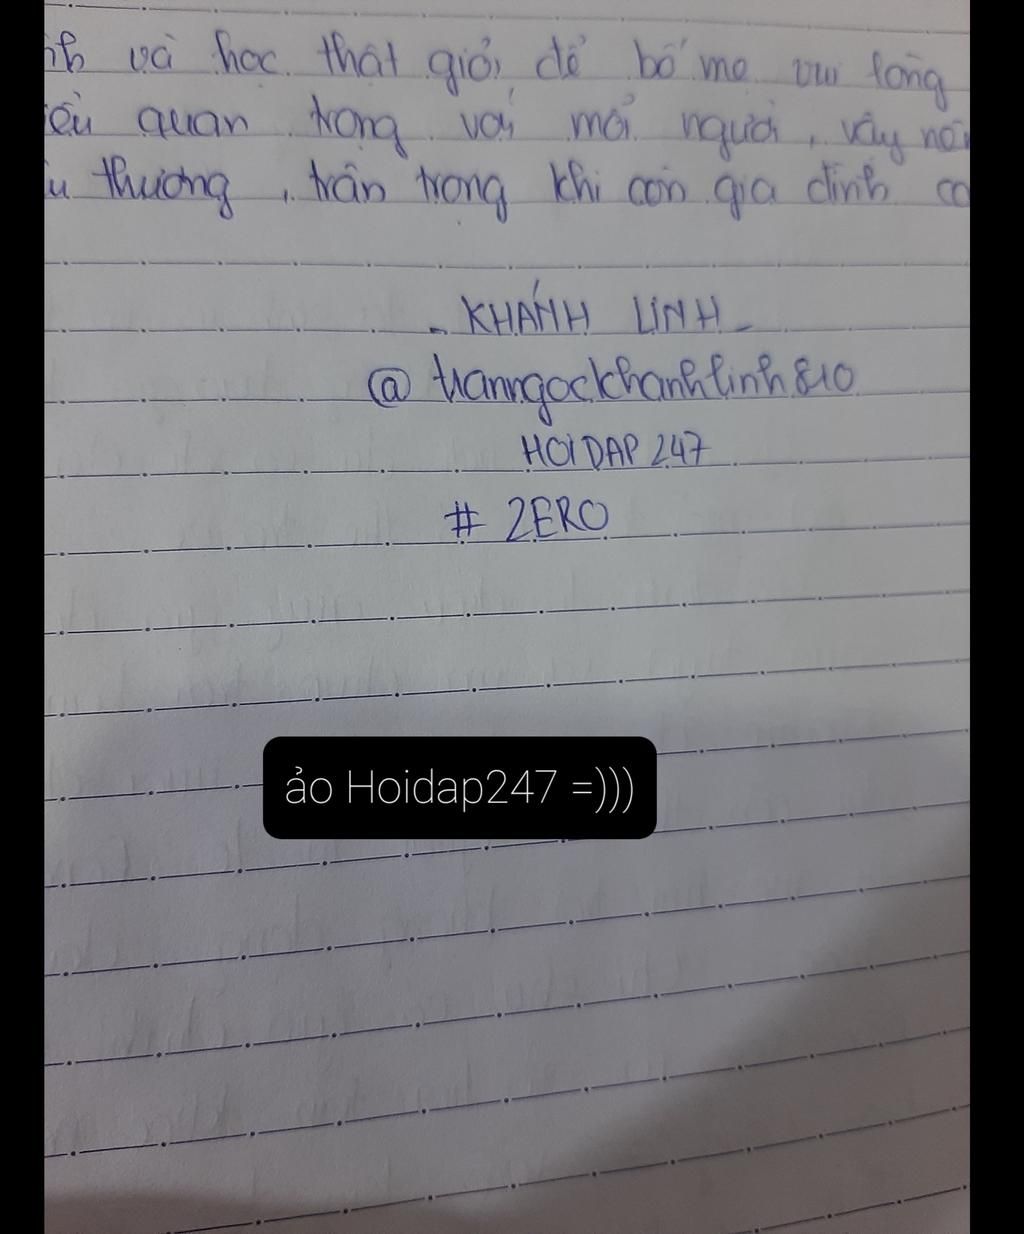 và học thật giỏi để bố mẹ vui lòng
quan trọng với mỗi người, vậy
thương, trân trọng khi còn gia đình
- KHÁNH LINH -
@ tranngockhanhlinh810
HOIDAP 247
# ZERO
ảo Hoidap247 =)))